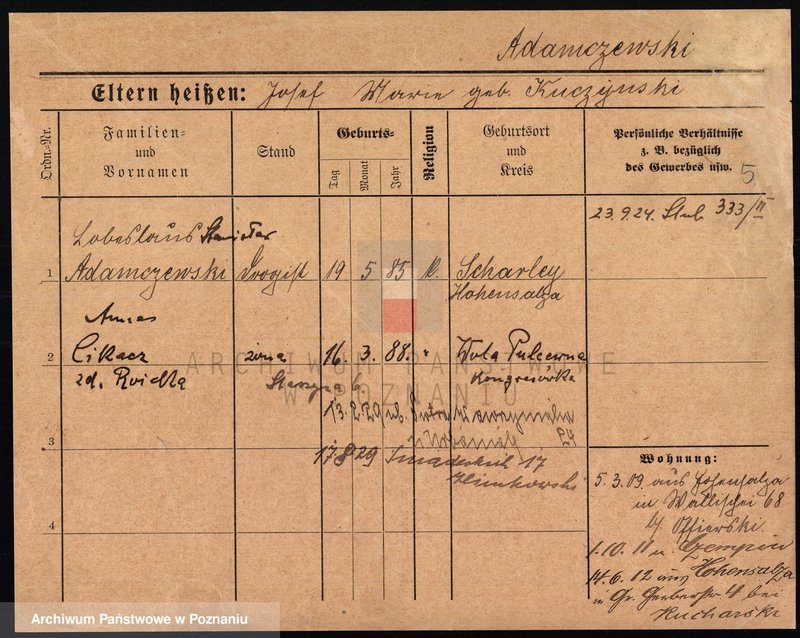 Adamczewski
Eltern heißen: Josef Marie geb. Kuczynski
Ordn.-Nr.
Familien-
und
Vornamen
Stand
Geburts-
Tag
Monat
Jahr
Religion
Geburtsort
und
Kreis
Persönliche Verhältnisse
z. B. bezüglich
des Gewerbes usw.
5
23.9.24. Stub. 333/II
Lobeslaus
1 Adamczewski Drogist 19 5 85 K. Scharley
Hohensalza
2 żona 16. 3. 88. " Wola
zd. Kongresówka
13. 2. 29
3
17 8 29 17
4
Wohnung:
5. 3. 09. aus Hohensalza
in Wallischei 68
b/
1.10. 11 n. Czempin
14.6.12 aus Hohensalza
in Gr. Gerberstr 4 bei
Kucharski
ARCHIWUM PAŃSTWOWE
W POZNANIU
Archiwum Państwowe w Poznaniu